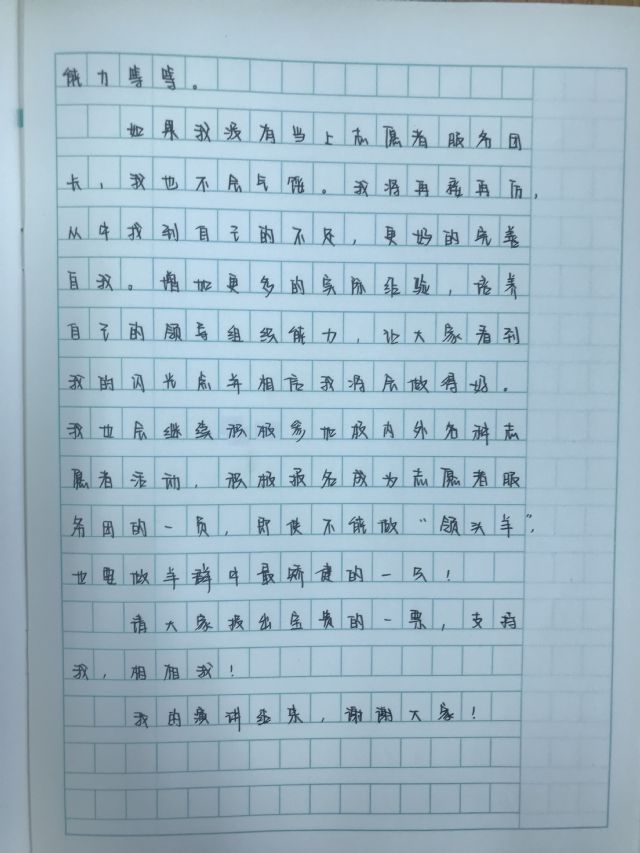 能力等等。
如果我没有当上志愿者服务团
长，我也不会气馁。我将再接再厉，
从中找到自己的不足，更好的完善
自我。增加更多的实际经验，培养
自己的领导组织能力，让大家看到
我的闪光点并相信我将会做得好。
我也会继续积极参加校内外各种志
愿者活动，积极报名成为志愿者服
务团的一员，即使不能做“领头羊”，
也要做羊群中最矫健的一只！
请大家投出宝贵的一票，支持
我，相相我！
我的演讲结束，谢谢大家！